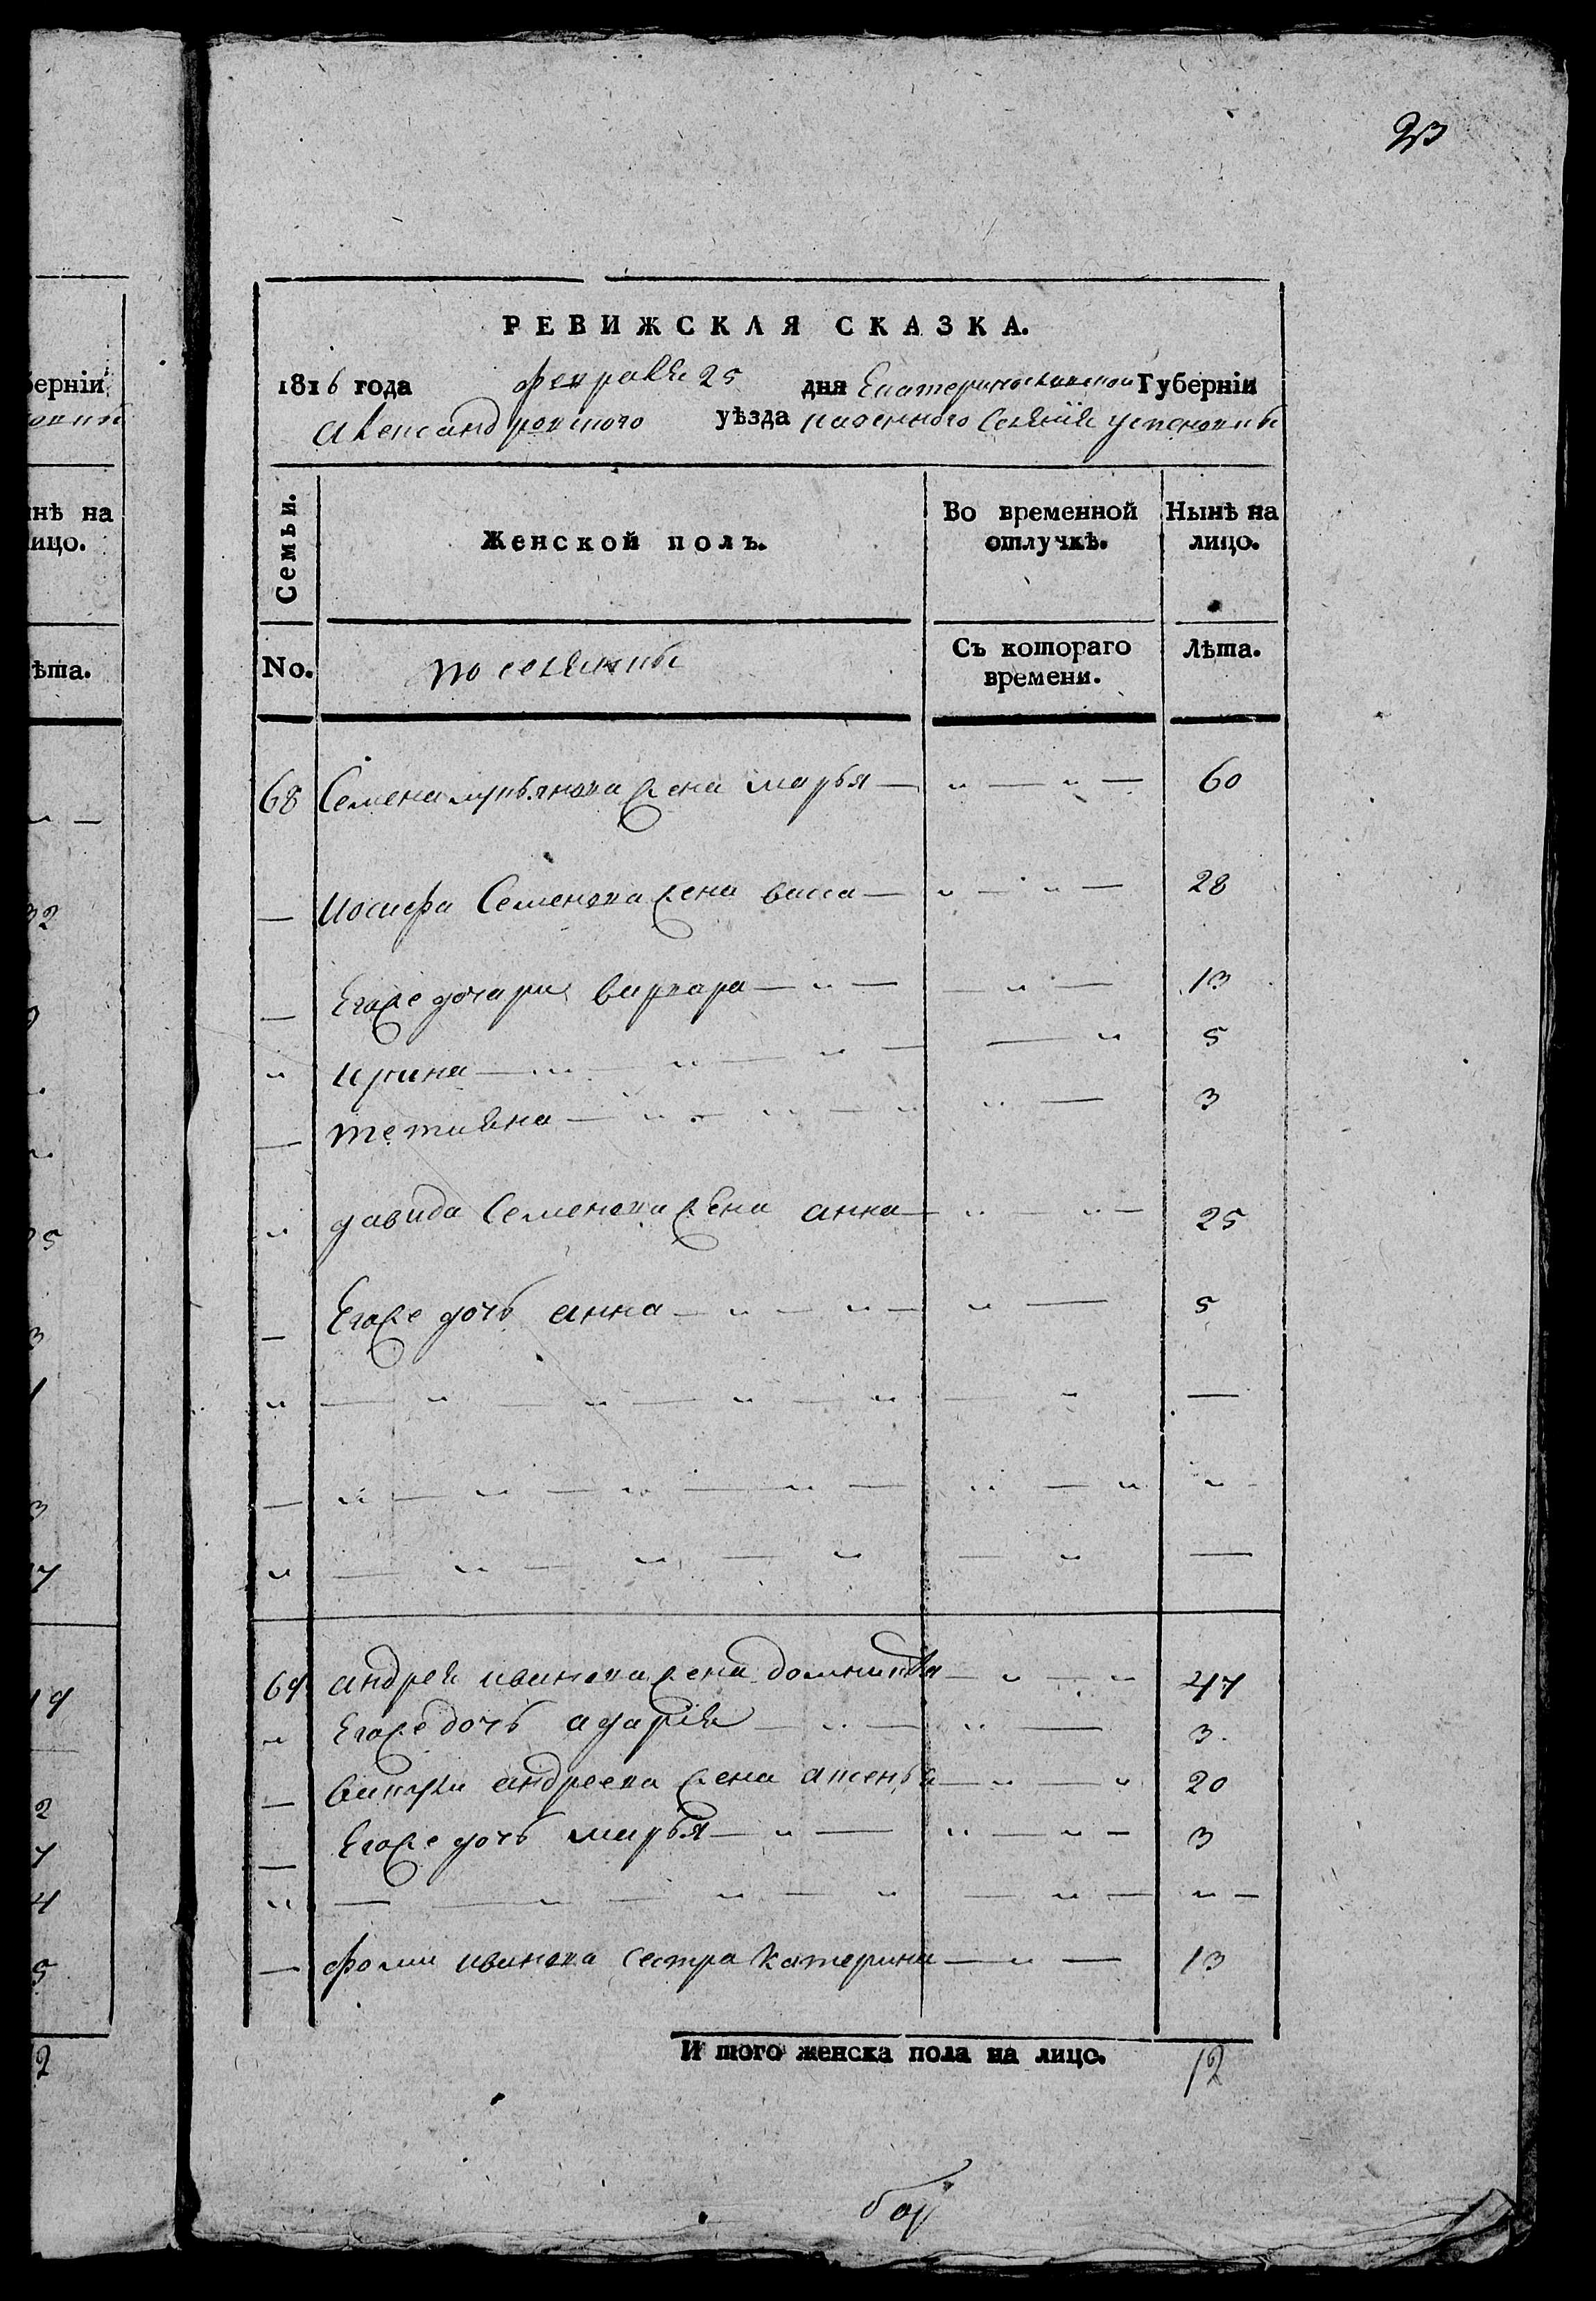 23
РЕВИЖСКАЯ СКАЗКА.
1816 года февраля 25 дня Екатеринославской Губерніи
Александровского уѣзда казенного Селенія успеновки
Семьи.
Женской полъ.
Во временной отлучкѣ.
Нынѣ на лицо.
No.
поселянки
Съ котораго времени.
Лѣта.
68 Семена лукьянова жена марья — 60
— иосифа Семенова жена васса — 28
— Егоже дочери варвара — 13
" ирина — 5
— тетияна — 3
" давида Семенова жена анна — 25
— Егоже дочь анна — 5
69 андрея иванова жена домникия — 47
" Егоже дочь дария — 3
— андреева жена аксенья — 20
— Егоже дочь марья — 3
— фомы иванова сестра катерина — 13
И того женска пола на лицо. 12
берніи
нѣ на
ицо.
ѣта.
32
25
3
1
3
19
2
4
5
2